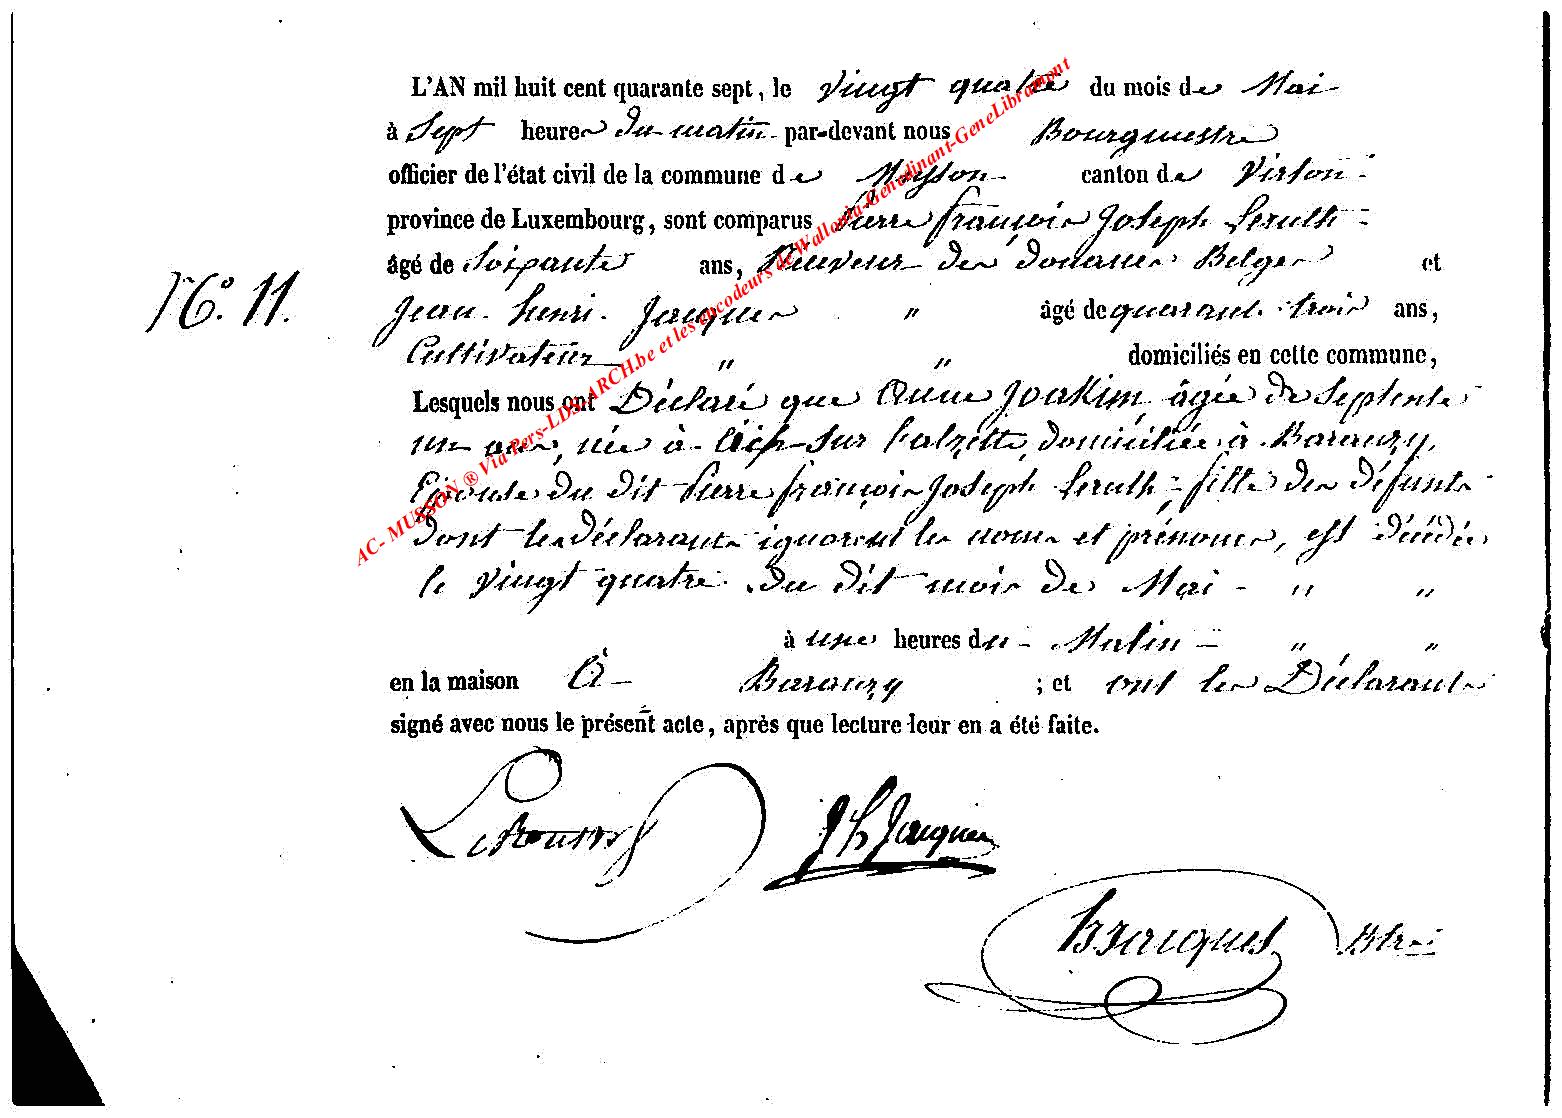 L'AN mil huit cent quarante sept, le vingt quatre du mois de Mai
à Sept heures du matin par-devant nous Bourgmestre
officier de l'état civil de la commune de Musson canton de Virton
province de Luxembourg, sont comparus Pierre françois Joseph
âgé de Soixante ans, Receveur des douanes Belges et
N° 11.
Jean henri Jacques " âgé de quarante trois ans,
Cultivateur " " domiciliés en cette commune,
Lesquels nous ont Déclaré que Anne Joakim, âgée de Septente
un ans, née à Esch sur l'alzette, domiciliée à Baranzy,
Epouse du dit Pierre françois Joseph fille des défunts
dont les déclarants ignorent les noms et prénoms, est décédée
le vingt quatre du dit mois de Mai " "
à une heures du Matin " "
en la maison à Baranzy ; et ont les Déclarants
signé avec nous le présent acte, après que lecture leur en a été faite.
J h Jacques
Jacques Btre
AC- MUSSON ® Via Pers-LDS-ARCH.be et les encodeurs de Wallonia-Genedinant-GeneLibramont